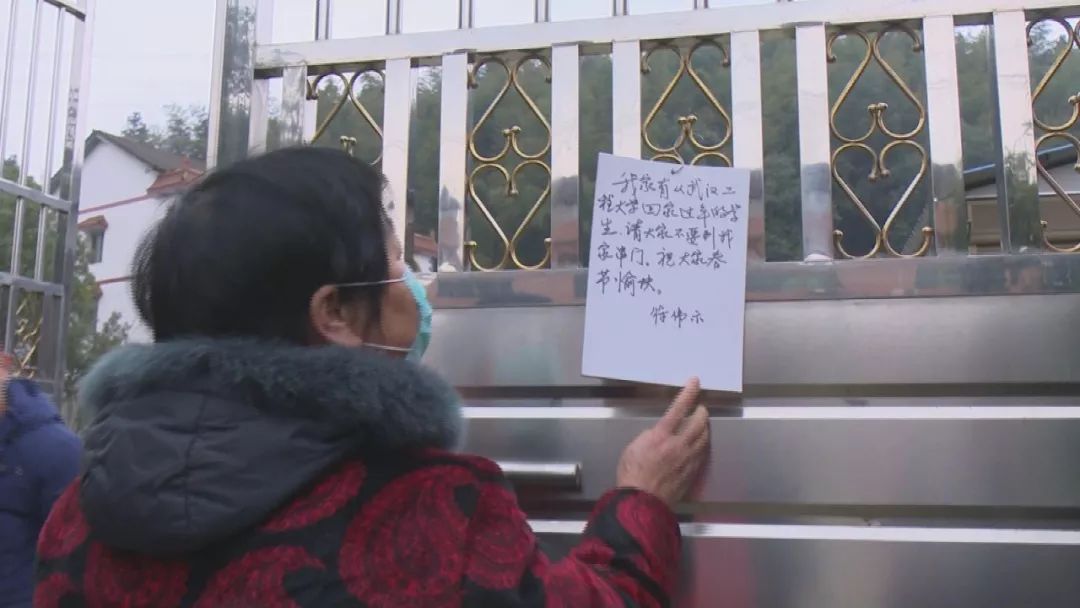 我家有从武汉工
程大学回家过年的学
生、请大家不要到我
家串门。祝大家春
节愉快。
徐伟示